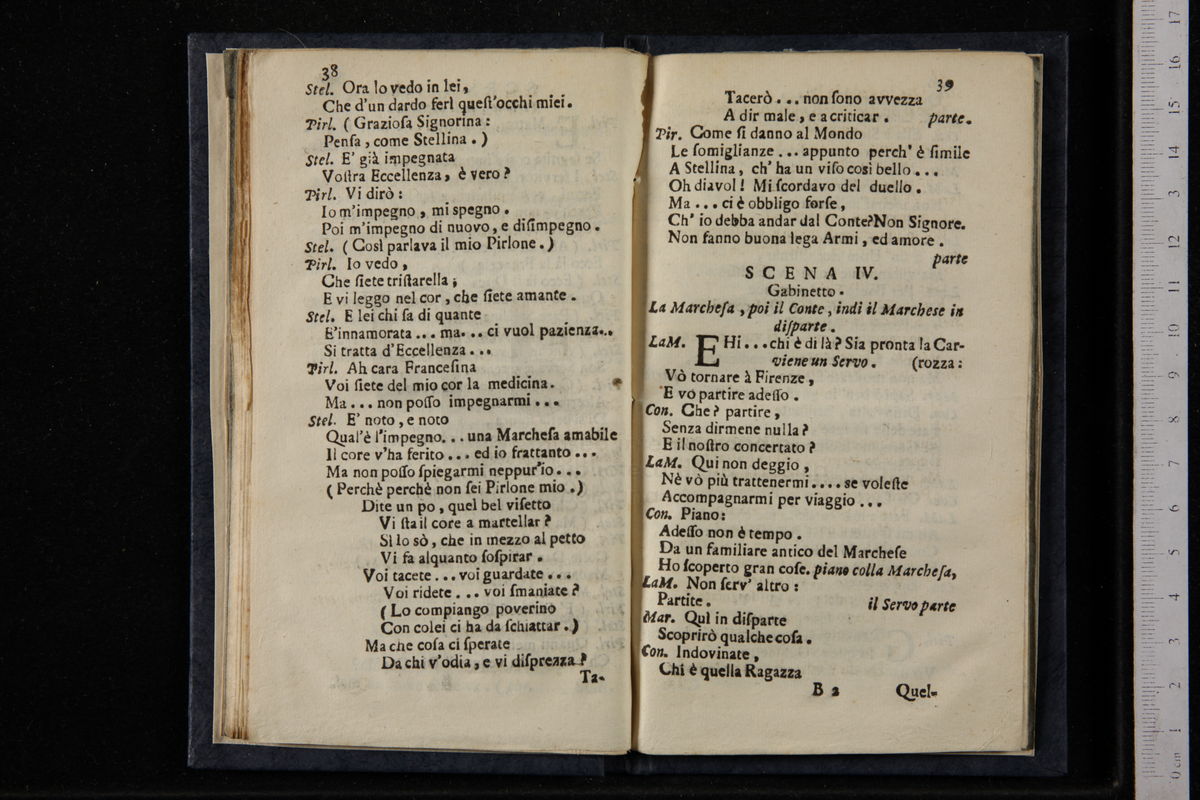 38
Stel. Ora lo vedo in lei,
Che d'un dardo ferì queſt'occhi miei.
Pirl. ( Grazioſa Signorina :
Penſa , come Stellina . )
Stel. E' già impegnata
Voſtra Eccellenza , è vero ?
Pirl. Vi dirò :
Io m'impegno , mi spegno .
Poi m'impegno di nuovo, e diſimpegno .
Stel. ( Così parlava il mio Pirlone . )
Pirl. Io vedo ,
Che ſiete triſtarella ;
E vi leggo nel cor , che ſiete amante .
Stel. E lei chi ſa di quante
E'innamorata ... ma... ci vuol pazienza...
Si tratta d'Eccellenza ...
Pirl. Ah cara Franceſina
Voi ſiete del mio cor la medicina .
Ma ... non poſſo impegnarmi ...
Stel. E' noto, e noto
Qual'è l'impegno... una Marcheſa amabile
Il core v'ha ferito ... ed io frattanto ...
Ma non poſſo ſpiegarmi neppur'io ...
( Perchè perchè non ſei Pirlone mio . )
Dite un po , quel bel viſetto
Vi ſta il core a martellar ?
Sì lo sò , che in mezzo al petto
Vi fa alquanto ſoſpirar .
Voi tacete ... voi guardate ...
Voi ridete ... voi ſmaniate ?
( Lo compiango poverino
Con colei ci ha da ſchiattar . )
Ma che coſa ci ſperate
Da chi v'odia , e vi diſprezza ?
Ta-
39
Tacerò ... non ſono avvezza
A dir male , e a criticar . parte.
Pir. Come ſi danno al Mondo
Le ſomiglianze ... appunto perch' è ſimile
A Stellina , ch' ha un viſo così bello ...
Oh diavol ! Mi ſcordavo del duello .
Ma ... ci è obbligo forſe ,
Ch' io debba andar dal Conte?Non Signore.
Non fanno buona lega Armi , ed amore .
parte
SCENA IV.
Gabinetto .
La Marcheſa , poi il Conte , indi il Marchese in
diſparte .
LaM. EHi ... chi è di là ? Sia pronta la Car-
viene un Servo . (rozza :
Vò tornare à Firenze ,
E vo partire adeſſo .
Con. Che ? partire ,
Senza dirmene nulla ?
E il noſtro concertato ?
LaM. Qui non deggio ,
Nè vò più trattenermi .... se voleſte
Accompagnarmi per viaggio ...
Con. Piano :
Adeſſo non è tempo .
Da un familiare antico del Marcheſe
Ho ſcoperto gran coſe. piano colla Marcheſa,
LaM. Non ſerv' altro :
Partite . il Servo parte
Mar. Quì in diſparte
Scoprirò qualche coſa .
Con. Indovinate ,
Chi è quella Ragazza
B 2 Quel-
0 cm 1 2 3 4 5 6 7 8 9 10 11 12 13 14 15 16 17